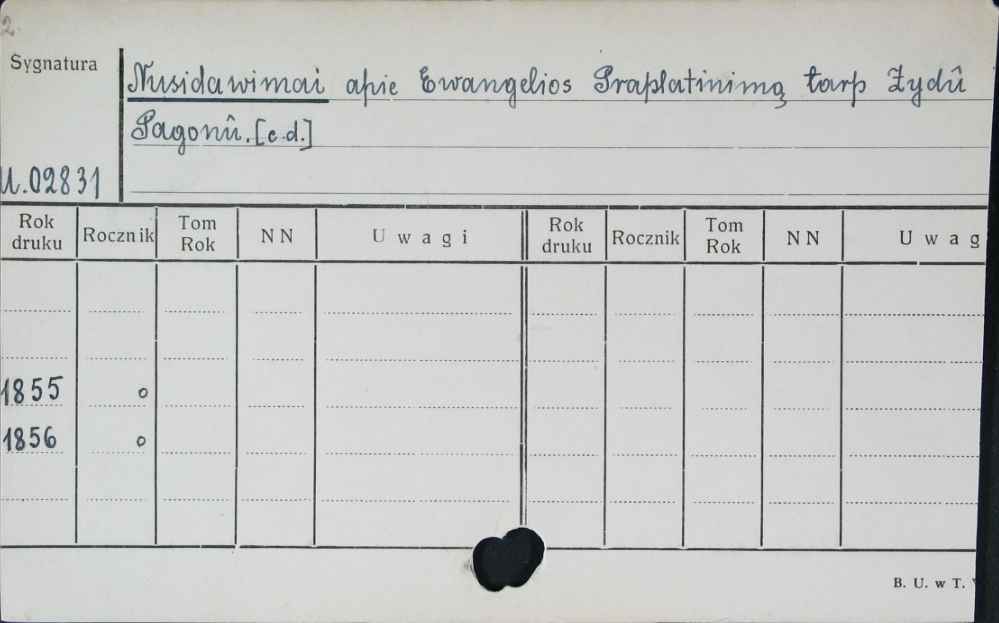 2.
Sygnatura
Nusidawimai apie Ewangelios Praplatinimą tarp Żydû
Pagonû. [c.d.]
U.02831
Rok druku Rocznik Tom Rok NN Uwagi Rok druku Rocznik Tom Rok NN Uwag
1855 o
1856 o
B. U. w T.